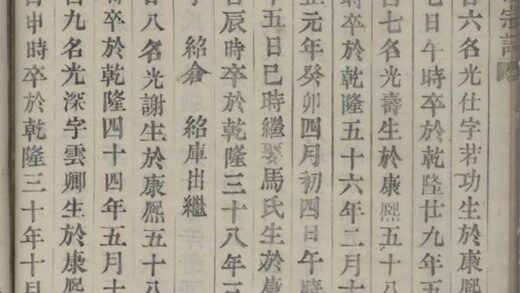 宗譜
廿六名光仕字若功生於
七日午時卒於乾隆廿九年五
廿七名光壽生於康熙五十
時卒於乾隆五十六年二月十
正元年癸卯四月初四日午時
十五日巳時繼娶馬氏生於康
日辰時卒於乾隆三十八年三
九 紹倉 紹庫出繼
廿八名光謝生於康熙五十八
時卒於乾隆四十四年五月十
廿九名光深字雲卿生於康熙
日申時卒於乾隆三十年十月